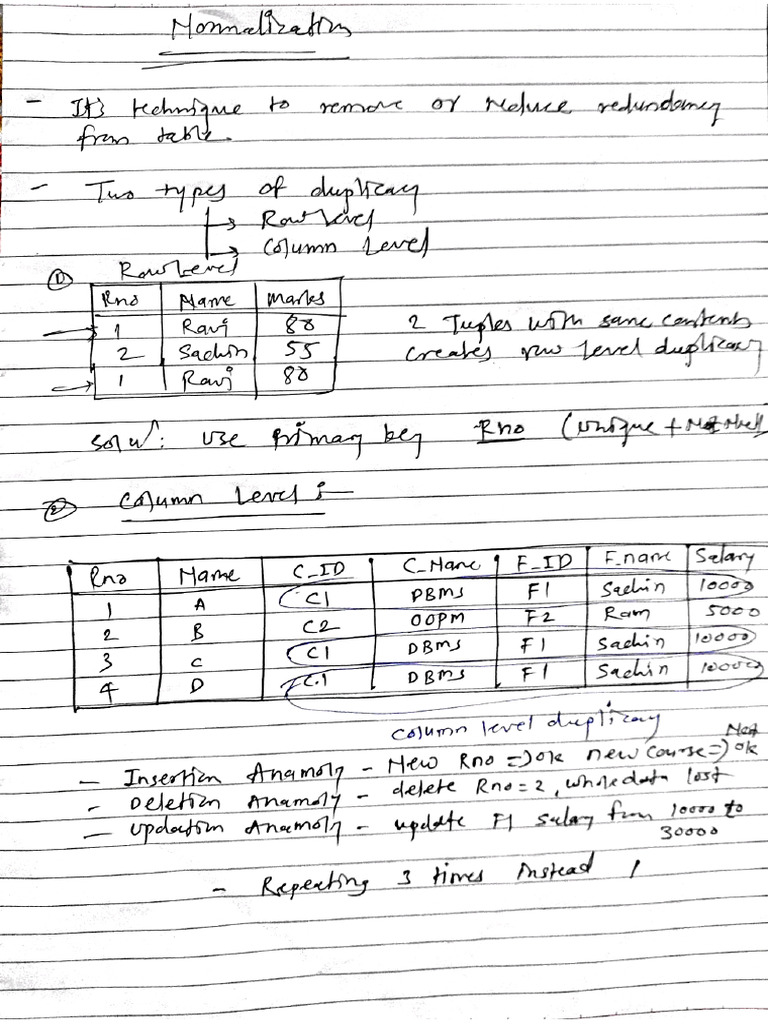 Normalization
- It's technique to remove or reduce redundancy
from table.
- Two types of duplicacy
↳ Row level
↳ Column Level
① Row Level
Rno Name Marks
1 Ravi 80
2 Sachin 55
1 Ravi 80
2 Tuples with same contents
creates row level duplicacy
Solⁿ: Use primary key Rno (Unique + Not Null
② Column Level :-
Rno Name C_ID C_Name F_ID F_name Salary
1 A C1 DBMS F1 Sachin 10000
2 B C2 OOPM F2 Ram 5000
3 C C1 DBMS F1 Sachin 10000
4 D C1 DBMS F1 Sachin 10000
column level duplicacy
- Insertion Anamoly - New Rno => ok new course => Not ok
- Deletion Anamoly - delete Rno=2, whole data lost
- Updation Anamoly - update F1 salary from 10000 to
30000
- Repeating 3 times instead 1